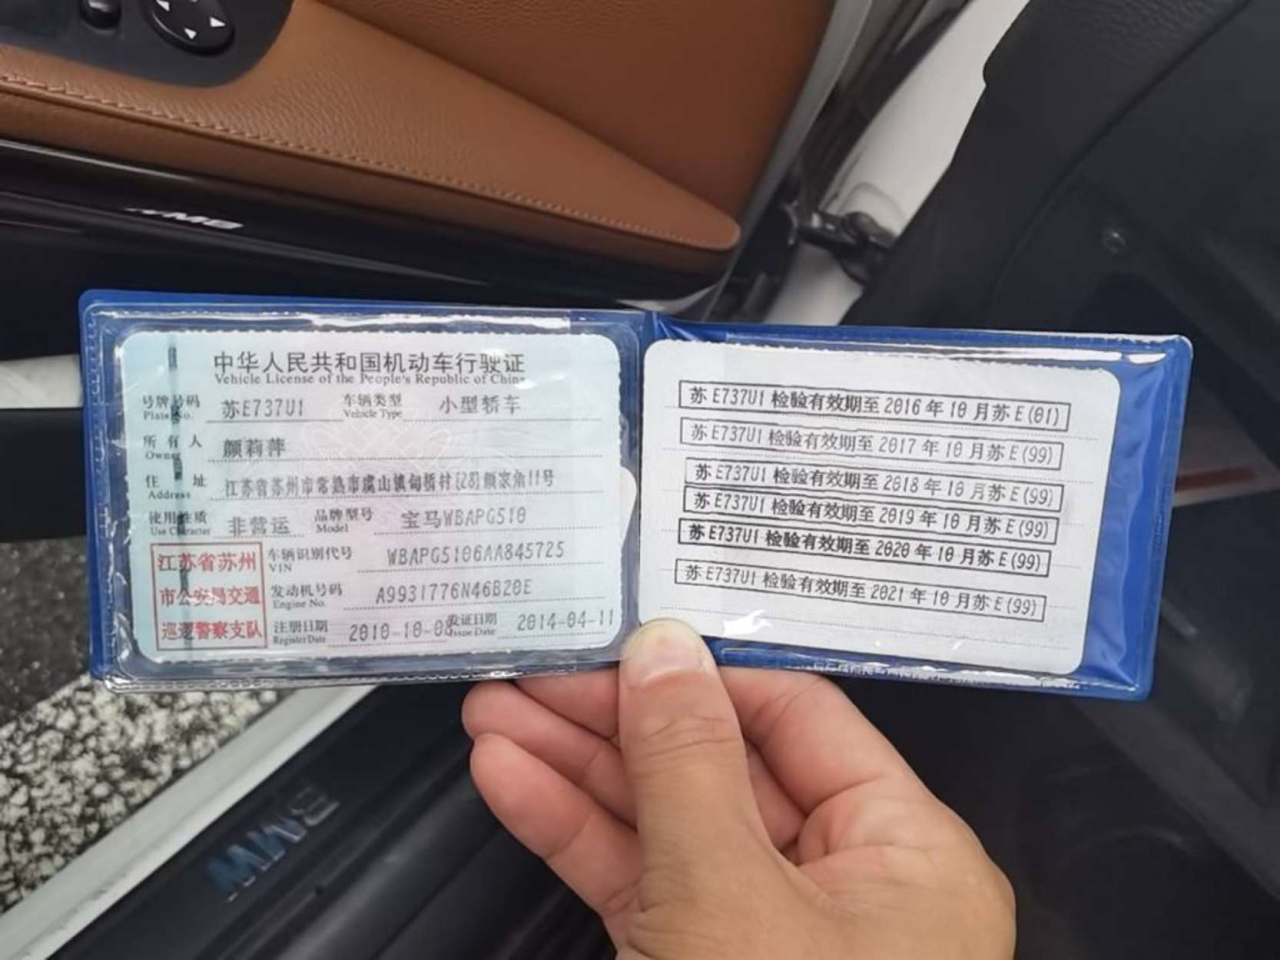 中华人民共和国机动车行驶证
Vehicle License of the People's Republic of China
号牌号码 Plate No. 苏E737U1 车辆类型 Vehicle Type 小型轿车
所有人 Owner 颜莉萍
住址 Address 江苏省苏州市常熟市虞山镇甸桥村(28)颜家角11号
使用性质 Use Character 非营运 品牌型号 Model 宝马WBAPG510
江苏省苏州 车辆识别代号 VIN WBAPG5106AA845725
市公安局交通 发动机号码 Engine No. A9931776N46B20E
巡逻警察支队 注册日期 Register Date 2010-10-08 发证日期 Issue Date 2014-04-11
苏E737U1 检验有效期至 2016 年 10 月苏E(01)
苏E737U1 检验有效期至 2017 年 10 月苏E(99)
苏E737U1 检验有效期至 2018 年 10 月苏E(99)
苏E737U1 检验有效期至 2019 年 10 月苏E(99)
苏E737U1 检验有效期至 2020 年 10 月苏E(99)
苏E737U1 检验有效期至 2021 年 10 月苏E(99)
BMW